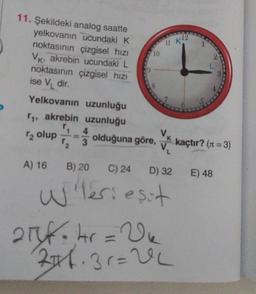 11. Şekildeki analog saatte
yelkovanın ucundaki K
noktasının çizgisel hızı
V_K, akrebin ucundaki L
noktasının çizgisel hızı
ise V_L dir.
K
L
12
1
2
3
10
11
Yelkovanın uzunluğu
r₁, akrebin uzunluğu
r₂ olup r₁/r₂ = 4/3 olduğuna göre, V_K/V_L kaçtır? (π = 3)
A) 16 B) 20 C) 24 D) 32 E) 48
w'leri eşit
2πf.4r = VK
2πf.3r = VL